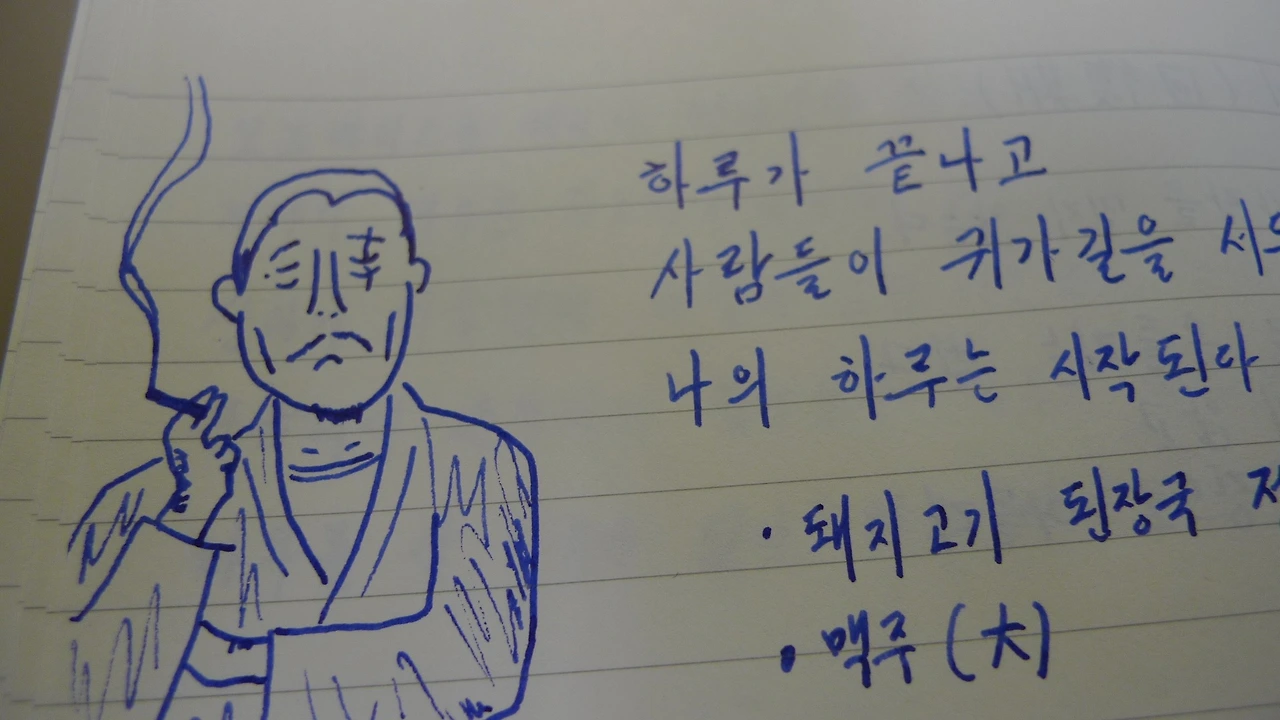 하루가 끝나고
사람들이 귀가길을
나의 하루는 시작된다
· 돼지고기 된장국
· 맥주 (大)